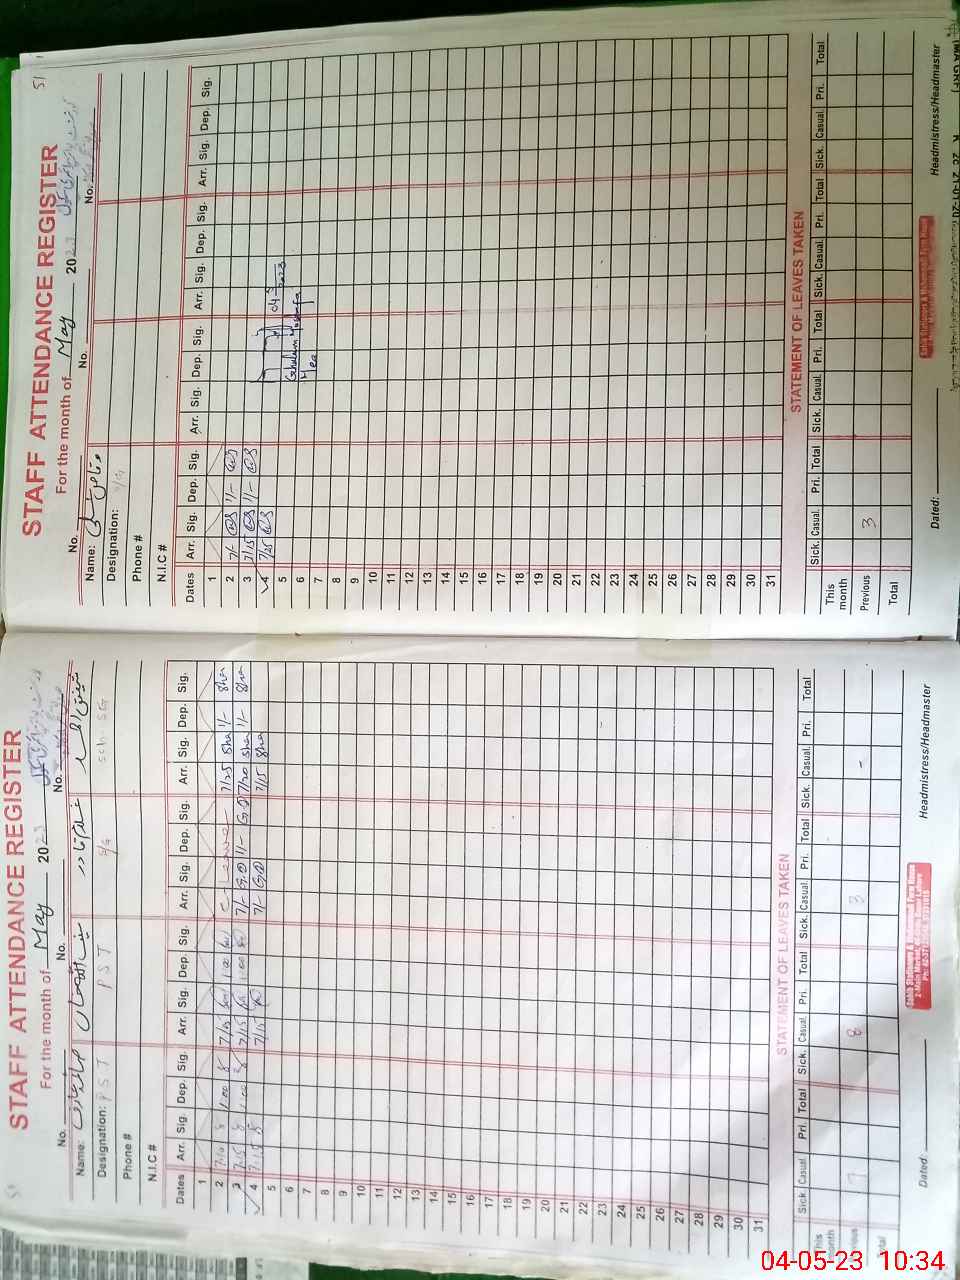 STAFF ATTENDANCE REGISTER
For the month of May 2023
No. No. No.
Name:
Designation: PST PST S/G Sch: SG
Phone #
N.I.C #
Dates Arr. Sig. Dep. Sig. Arr. Sig. Dep. Sig. Arr. Sig. Dep. Sig. Arr. Sig. Dep. Sig.
1
2 7:10 1:00 7/15 1:00 C-Leave 7/25 Sha 1/- Sha
3 7:15 1:00 7/15 1:00 7/- G.Q 1/- G.Q 7/20 Sha 1/- Sha
4 7:15 7/15 7/- G.Q 7/15 Sha
5
6
7
8
9
10
11
12
13
14
15
16
17
18
19
20
21
22
23
24
25
26
27
28
29
30
31
STATEMENT OF LEAVES TAKEN
Sick. Casual. Pri. Total Sick. Casual. Pri. Total Sick. Casual. Pri. Total Sick. Casual. Pri. Total
This month
Previous 7 8 3 -
Total
Dated: Headmistress/Headmaster
51
STAFF ATTENDANCE REGISTER
For the month of May 2023
No. No. No.
Name:
Designation:
Phone #
N.I.C #
Dates Arr. Sig. Dep. Sig. Arr. Sig. Dep. Sig. Arr. Sig. Dep. Sig. Arr. Sig. Dep. Sig.
1
2 7/- 1/-
3 7/15 1/-
4 7/25
5
6
7
8
9
10
11
12
13
14
15
16
17
18
19
20
21
22
23
24
25
26
27
28
29
30
31
STATEMENT OF LEAVES TAKEN
Sick. Casual. Pri. Total Sick. Casual. Pri. Total Sick. Casual. Pri. Total Sick. Casual. Pri. Total
This month
Previous 3
Total
Dated: Headmistress/Headmaster
04-05-23 10:34